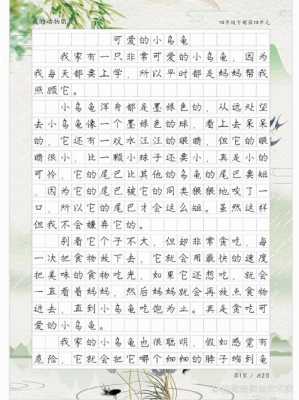 我的动物朋友
四年级下册第四单元
可爱的小乌龟
我家有一只非常可爱的小乌龟，因为
我每天都要上学，所以平时都是妈妈帮我
照顾它。
小乌龟浑身都是墨绿色的，从远处望
去小乌龟像一个墨绿色的球，看上去呆呆
的，它还有一双水汪汪的眼睛，但它的眼
睛很小，比一颗小珠子还要小，真是小的
可怜，它的尾巴比其他的乌龟的尾巴要短
，因为它的尾巴被它的同类狠狠地咬了一
口，所以它的尾巴才会这么短。虽然这样
但我不会嫌弃它的。
别看它个子不大，但却非常贪吃，每
一次把食物放下去，它就会用最快的速度
把美味的食物吃光，如果它还想吃，就会
一直看着妈妈，然后妈妈就会再放点食物
进去，直到小乌龟吃饱为止。真是贪吃可
爱的小乌龟。
我家的小乌龟也很聪明，假如感觉有
危险，它就会把它哪个细细的脖子缩到龟
第1页 / 共2页